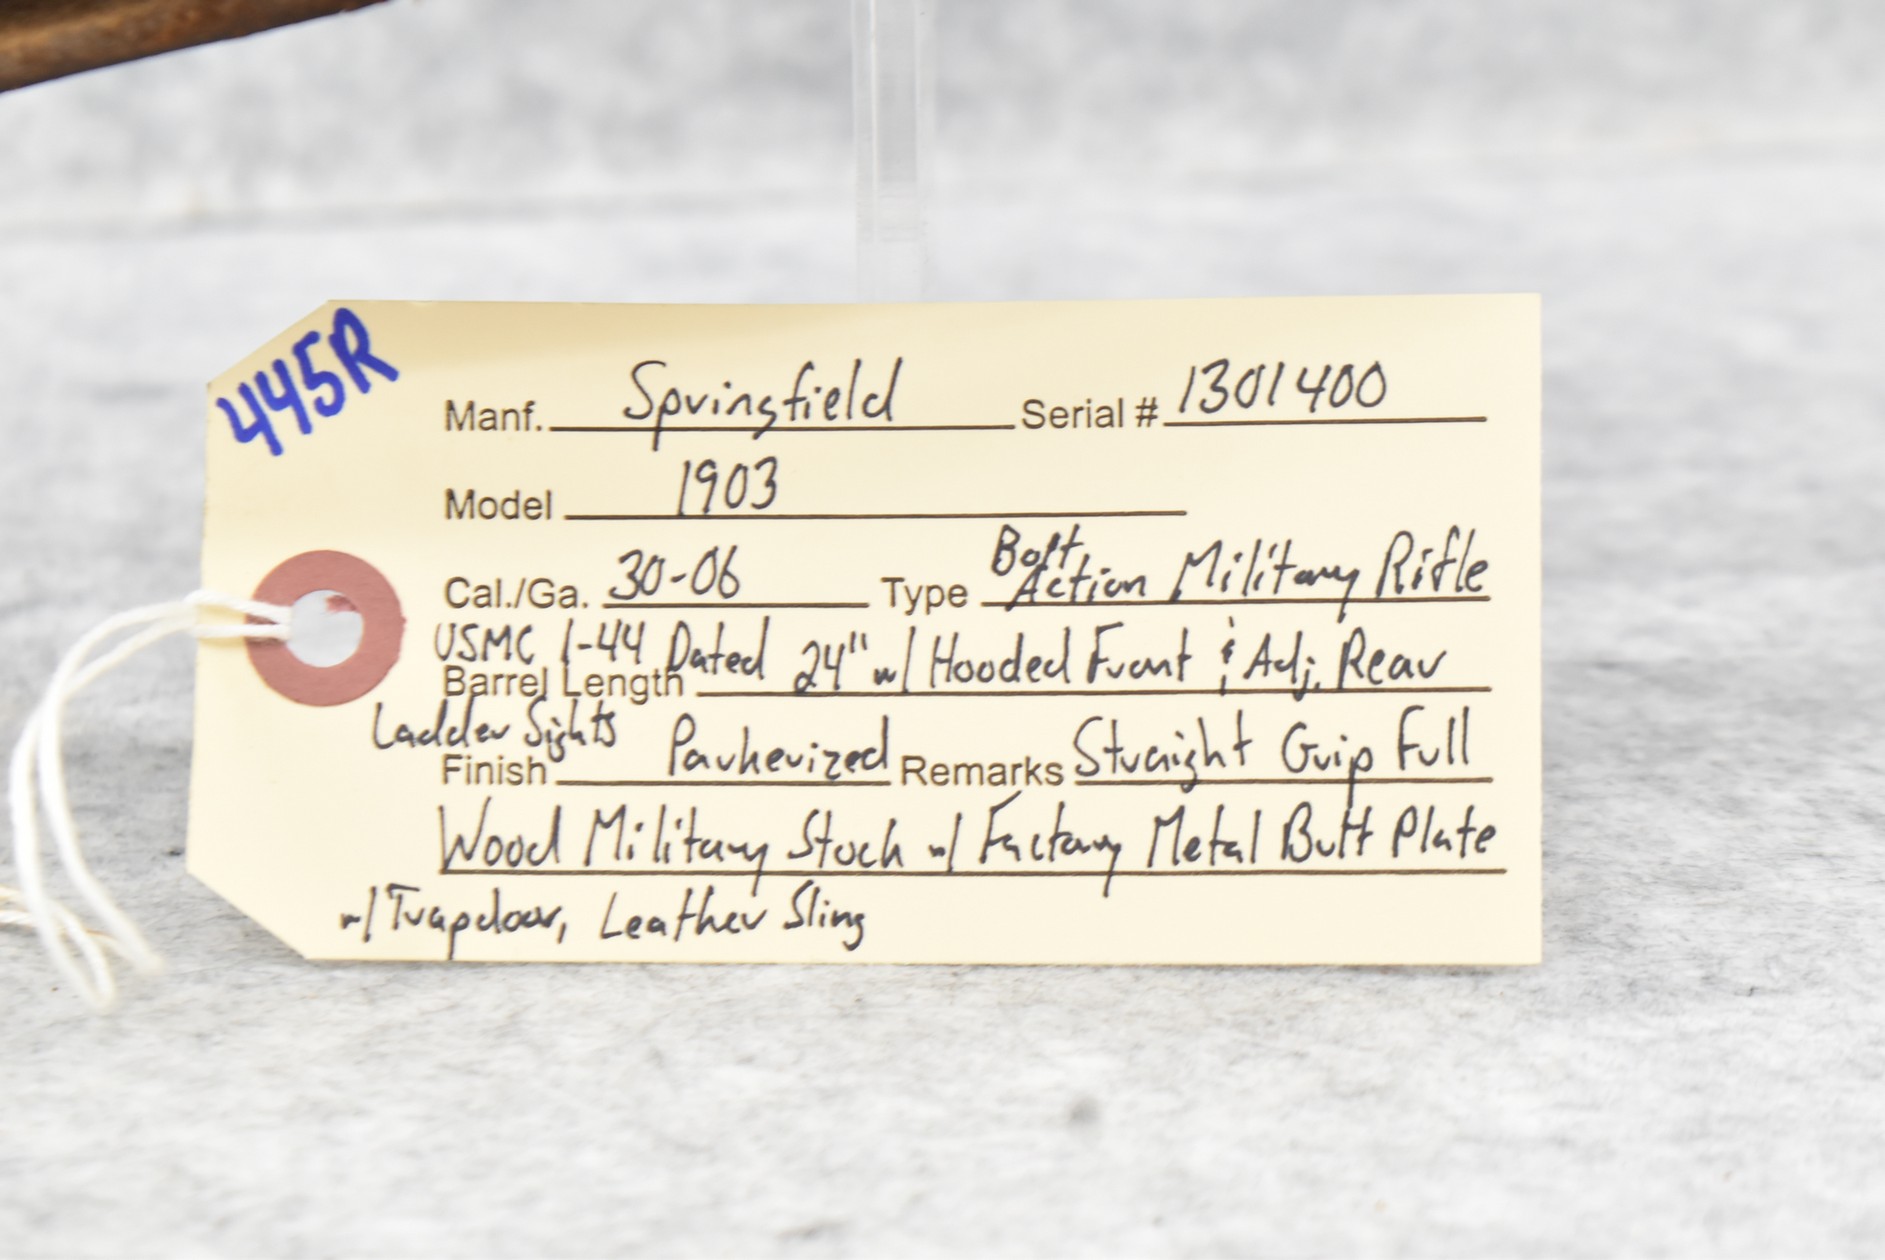 445R
Manf. Springfield Serial # 1301400
Model 1903
Cal./Ga. 30-06 Type Bolt Action Military Rifle
USMC 1-44 Dated 24" w/ Hooded Front & Adj. Rear
Barrel Length
Ladder Sights
Finish Parkerized Remarks Straight Grip Full
Wood Military Stock w/ Factory Metal Butt Plate
w/ Trapdoor, Leather Sling